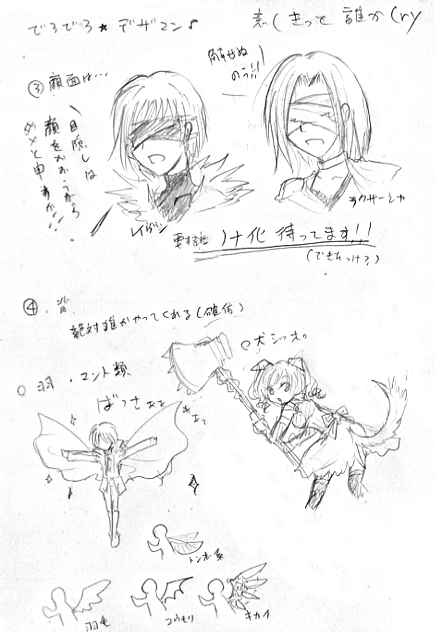 でろでろ★デザマン♪
悲しきっと誰かCry
③顔面は…
目隠しは
顔をおおうから
ダメと申すか!!
のう!!
レイガン
ラクサーシャ
要するに
ノナ化 待ってます!!
(できたっけ?)
④
絶対誰かやってくれる(確信)
○羽・マント類
ばっさぁぁ
犬ジオ。
トンボ系
羽毛
コウモリ
キカイ